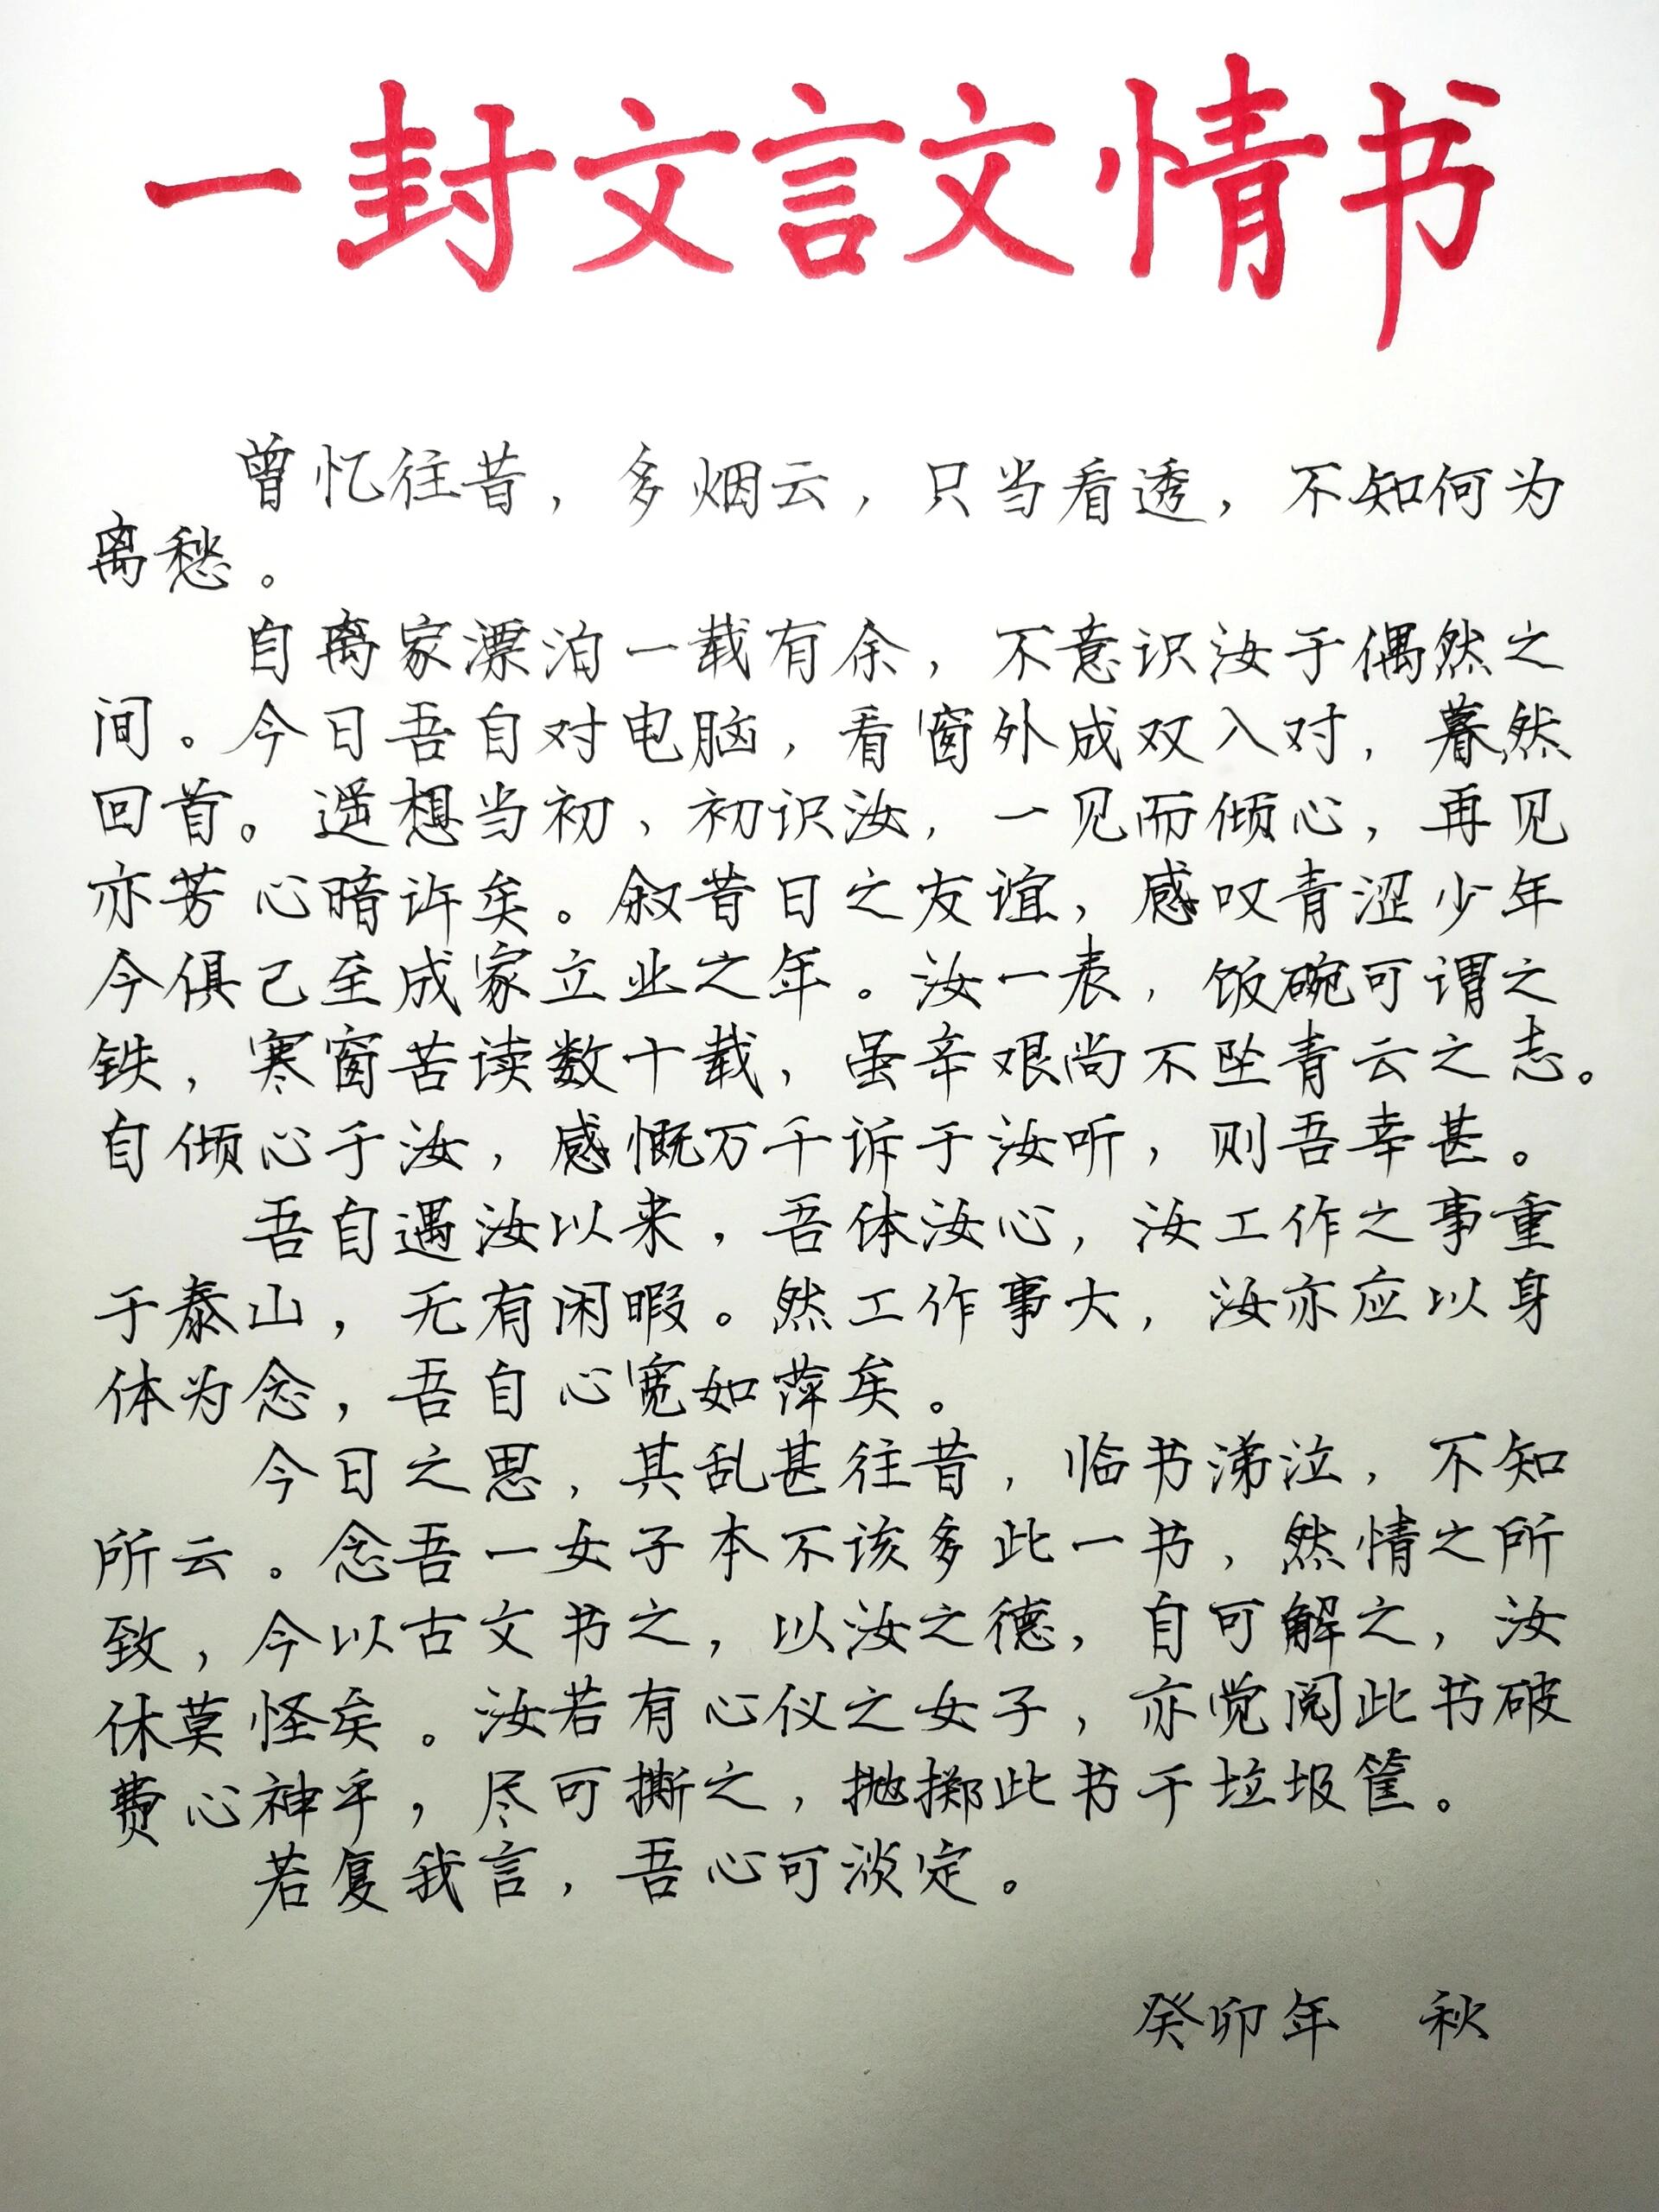 一封文言文情书
曾忆往昔，多烟云，只当看透，不知何为
离愁。
自离家漂泊一载有余，不意识汝于偶然之
间。今日吾自对电脑，看窗外成双入对，暮然
回首。遥想当初，初识汝，一见而倾心，再见
亦芳心暗许矣。叙昔日之友谊，感叹青涩少年
今俱已至成家立业之年。汝一表，饭碗可谓之
铁，寒窗苦读数十载，虽辛艰尚不坠青云之志。
自倾心于汝，感慨万千诉于汝听，则吾幸甚。
吾自遇汝以来，吾体汝心，汝工作之事重
于泰山，无有闲暇。然工作事大，汝亦应以身
体为念，吾自心宽如萍矣。
今日之思，其乱甚往昔，临书涕泣，不知
所云。念吾一女子本不该多此一书，然情之所
致，今以古文书之，以汝之德，自可解之，汝
休莫怪矣。汝若有心仪之女子，亦觉阅此书破
费心神乎，尽可撕之，抛掷此书于垃圾筐。
若复我言，吾心可淡定。
癸卯年 秋